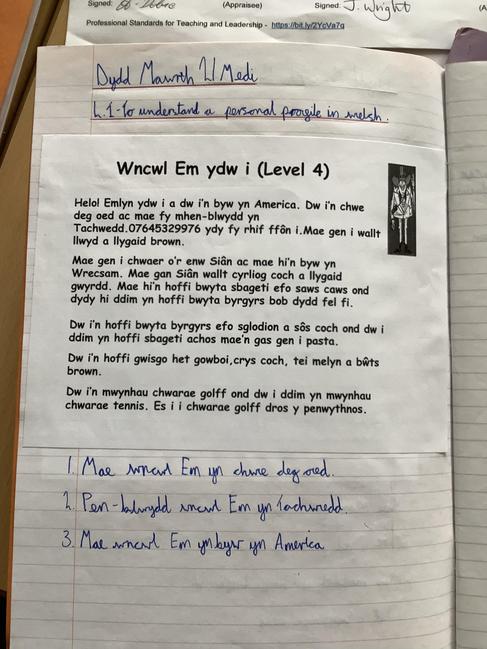 Signed: (Appraisee) Signed: J. Wright (A
Professional Standards for Teaching and Leadership - https://bit.ly/2YcVa7q
Dydd Mawrth 21 Medi
L.I - To understand a personal in welsh.
Wncwl Em ydw i (Level 4)
Helo! Emlyn ydw i a dw i'n byw yn America. Dw i'n chwe
deg oed ac mae fy mhen-blwydd yn
Tachwedd.07645329976 ydy fy rhif ffôn i.Mae gen i wallt
llwyd a llygaid brown.
Mae gen i chwaer o'r enw Siân ac mae hi'n byw yn
Wrecsam. Mae gan Siân wallt cyrliog coch a llygaid
gwyrdd. Mae hi'n hoffi bwyta sbageti efo saws caws ond
dydy hi ddim yn hoffi bwyta byrgyrs bob dydd fel fi.
Dw i'n hoffi bwyta byrgyrs efo sglodion a sôs coch ond dw i
ddim yn hoffi sbageti achos mae'n gas gen i pasta.
Dw i'n hoffi gwisgo het gowboi,crys coch, tei melyn a bŵts
brown.
Dw i'n mwynhau chwarae golff ond dw i ddim yn mwynhau
chwarae tennis. Es i i chwarae golff dros y penwythnos.
1. Mae wncwl Em yn chwe deg oed.
2. Pen-blwydd wncwl Em yn Tachwedd.
3. Mae wncwl Em yn byw yn America